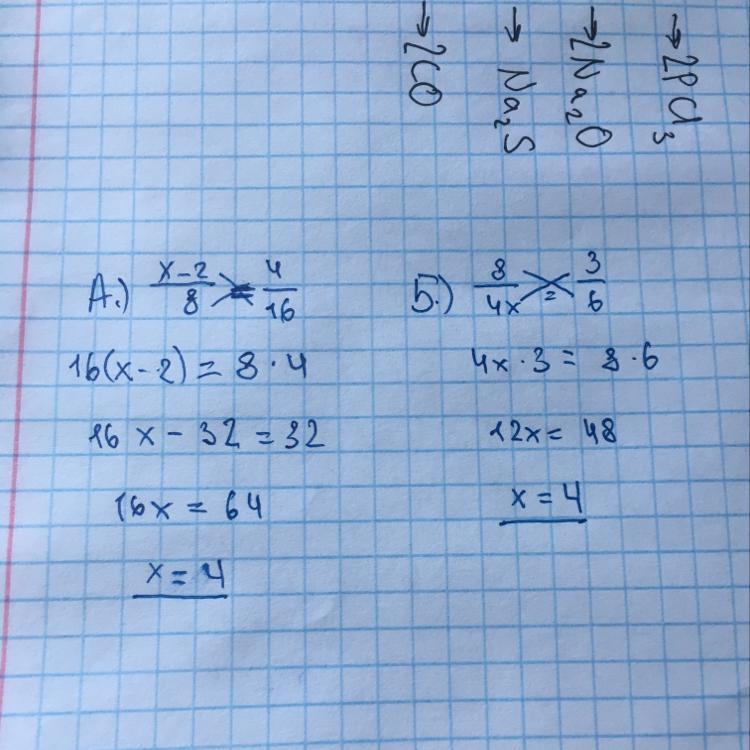 → 2PCl₃
→ 2Na₂O
→ Na₂S
→ 2CO
А.) (x-2)/8 = 4/16
16(x-2) = 8·4
16x - 32 = 32
16x = 64
x = 4
Б.) 8/4x = 3/6
4x·3 = 8·6
12x = 48
x = 4